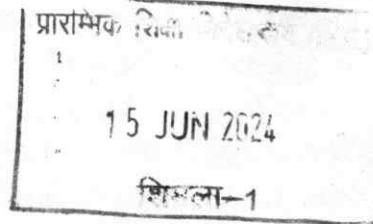 प्रारम्भिक शिक्षा
15 JUN 2024
शिमला-1